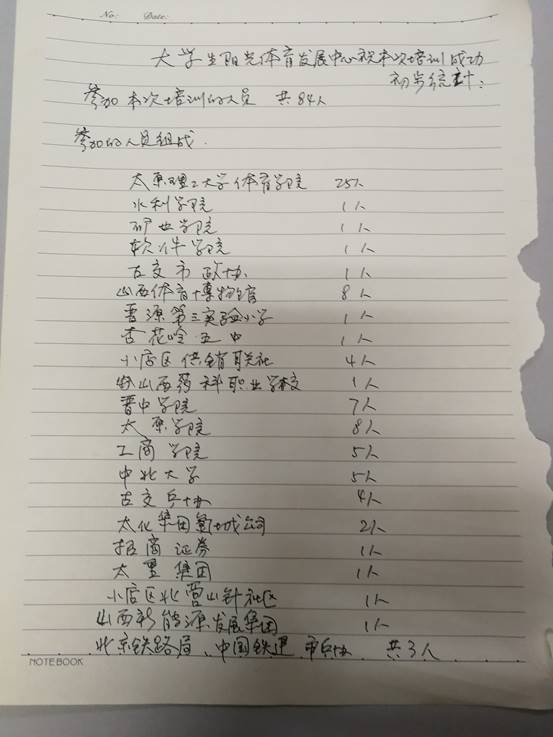 No:          Date:
大学生阳光体育发展中心祝本次培训成功
初步统计:
参加本次培训的人员 共84人
参加的人员组成.
太原理工大学体育学院 25人
水利学院 1人
矿业学院 1人
软件学院 1人
古交市政协 1人
山西体育博物馆 8人
晋源第三实验小学 1人
杏花岭五中 1人
小店区供销联社 4人
山西药科职业学校 1人
晋中学院 7人
太原学院 8人
工商学院 5人
中北大学 5人
古交乒协 4人
太化集团 公司 2人
招商证券 1人
太重集团 1人
小店区北营山针社区 1人
山西新能源发展集团 1人
北京铁路局、中国铁建 市乒协 共3人
NOTEBOOK